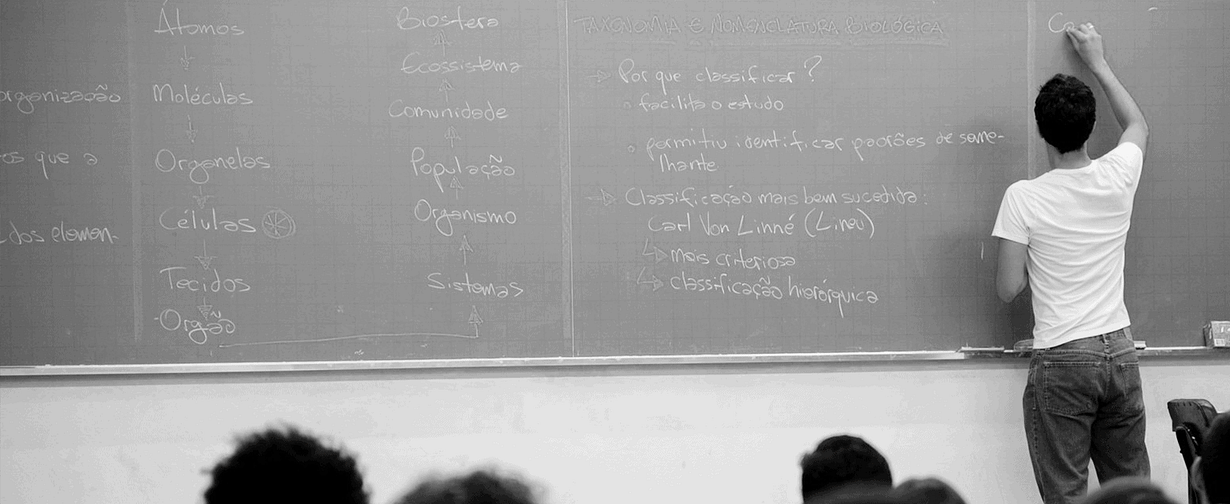 organização
os que a
dos elemen-
Átomos
Moléculas
Organelas
Células
Tecidos
Orgão
Biosfera
Ecossistema
Comunidade
População
Organismo
Sistemas
TAXONOMIA E NOMENCLATURA BIOLÓGICA
Por que classificar?
facilita o estudo
permitiu identificar padrões de seme-
lhante
Classificação mais bem sucedida:
Carl Von Linné (Lineu)
mais criteriosa
classificação hierárquica